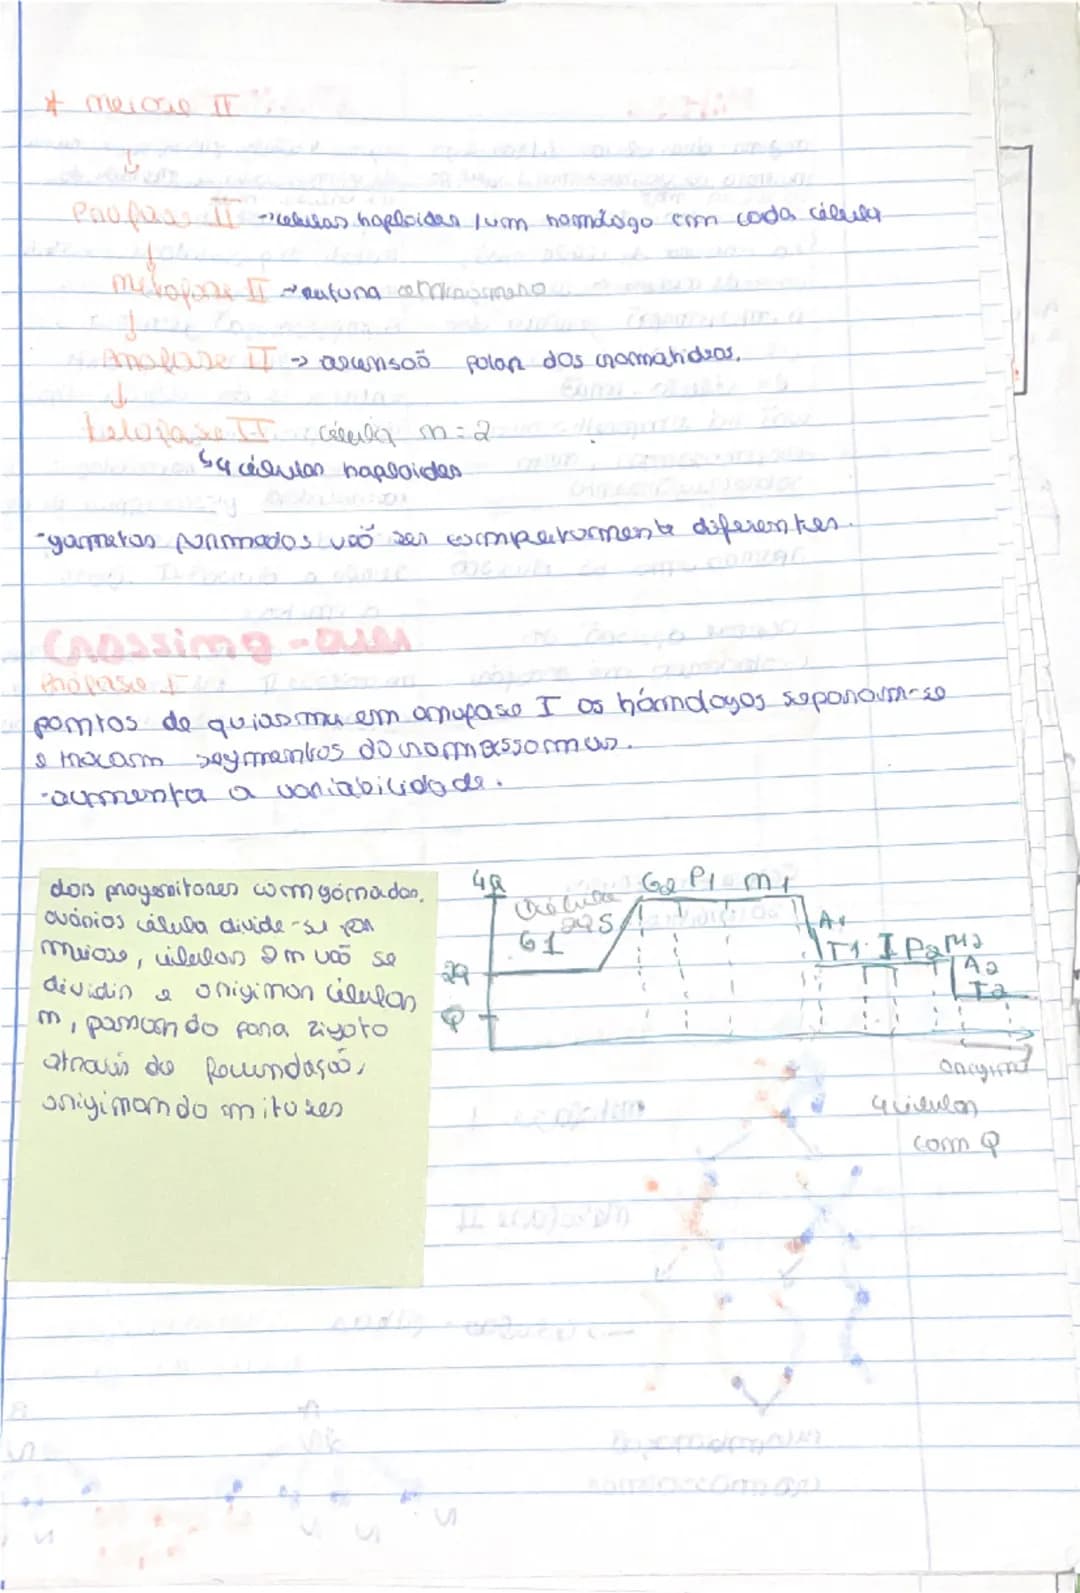 * meiose II
Profase II → células haploides / um homólogo em cada célula
Metafase II → ruturna centrómero
Anafase II → ascensaõ polar dos cromatídeos.
telofase II célula n=2
↳ 4 células haploides
- gametas formados vaõ ser completamente diferentes.
Crossing-over
Prófase I
pontos de quiasma em anafase I os homólogos separam-se
e trocam segmentos do cromossomas.
- aumenta a variabilidade.
dois progenitores com gónadas,
ovários célula divide-se por
meiose, células 2n vaõ se
dividir e originar células
n, passando para zigoto
através de fecundaçaõ,
originando mitoses
4Q
G2 P1 M1
2Q S
G1
A1
T1 I P2 M2
2Q
A2
T2
Q
origina
4 células
com Q